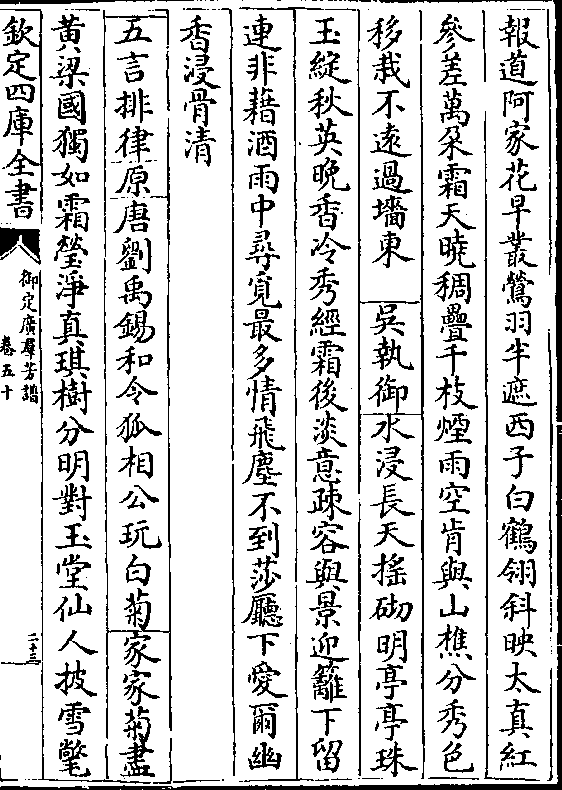 報道阿家花早叢鶯羽半遮西子白鶴翎斜映太真紅
參差萬朶霜天曉稠疊千枝煙雨空肯與山樵分秀色
移栽不遠過墻東　吳執御水浸長天搖砌明亭亭珠
玉綻秋英晩香冷秀經霜後淡意疎容與景迎籬下留
連非藉酒雨中尋覓最多情飛塵不到莎廳下愛爾幽
香浸骨清
五言排律原唐劉禹錫和令狐相公玩白菊家家菊盡
黃梁國獨如霜瑩淨真琪樹分明對玉堂仙人披雪氅
欽定四庫全書
御定廣羣芳譜
卷五十
二十三